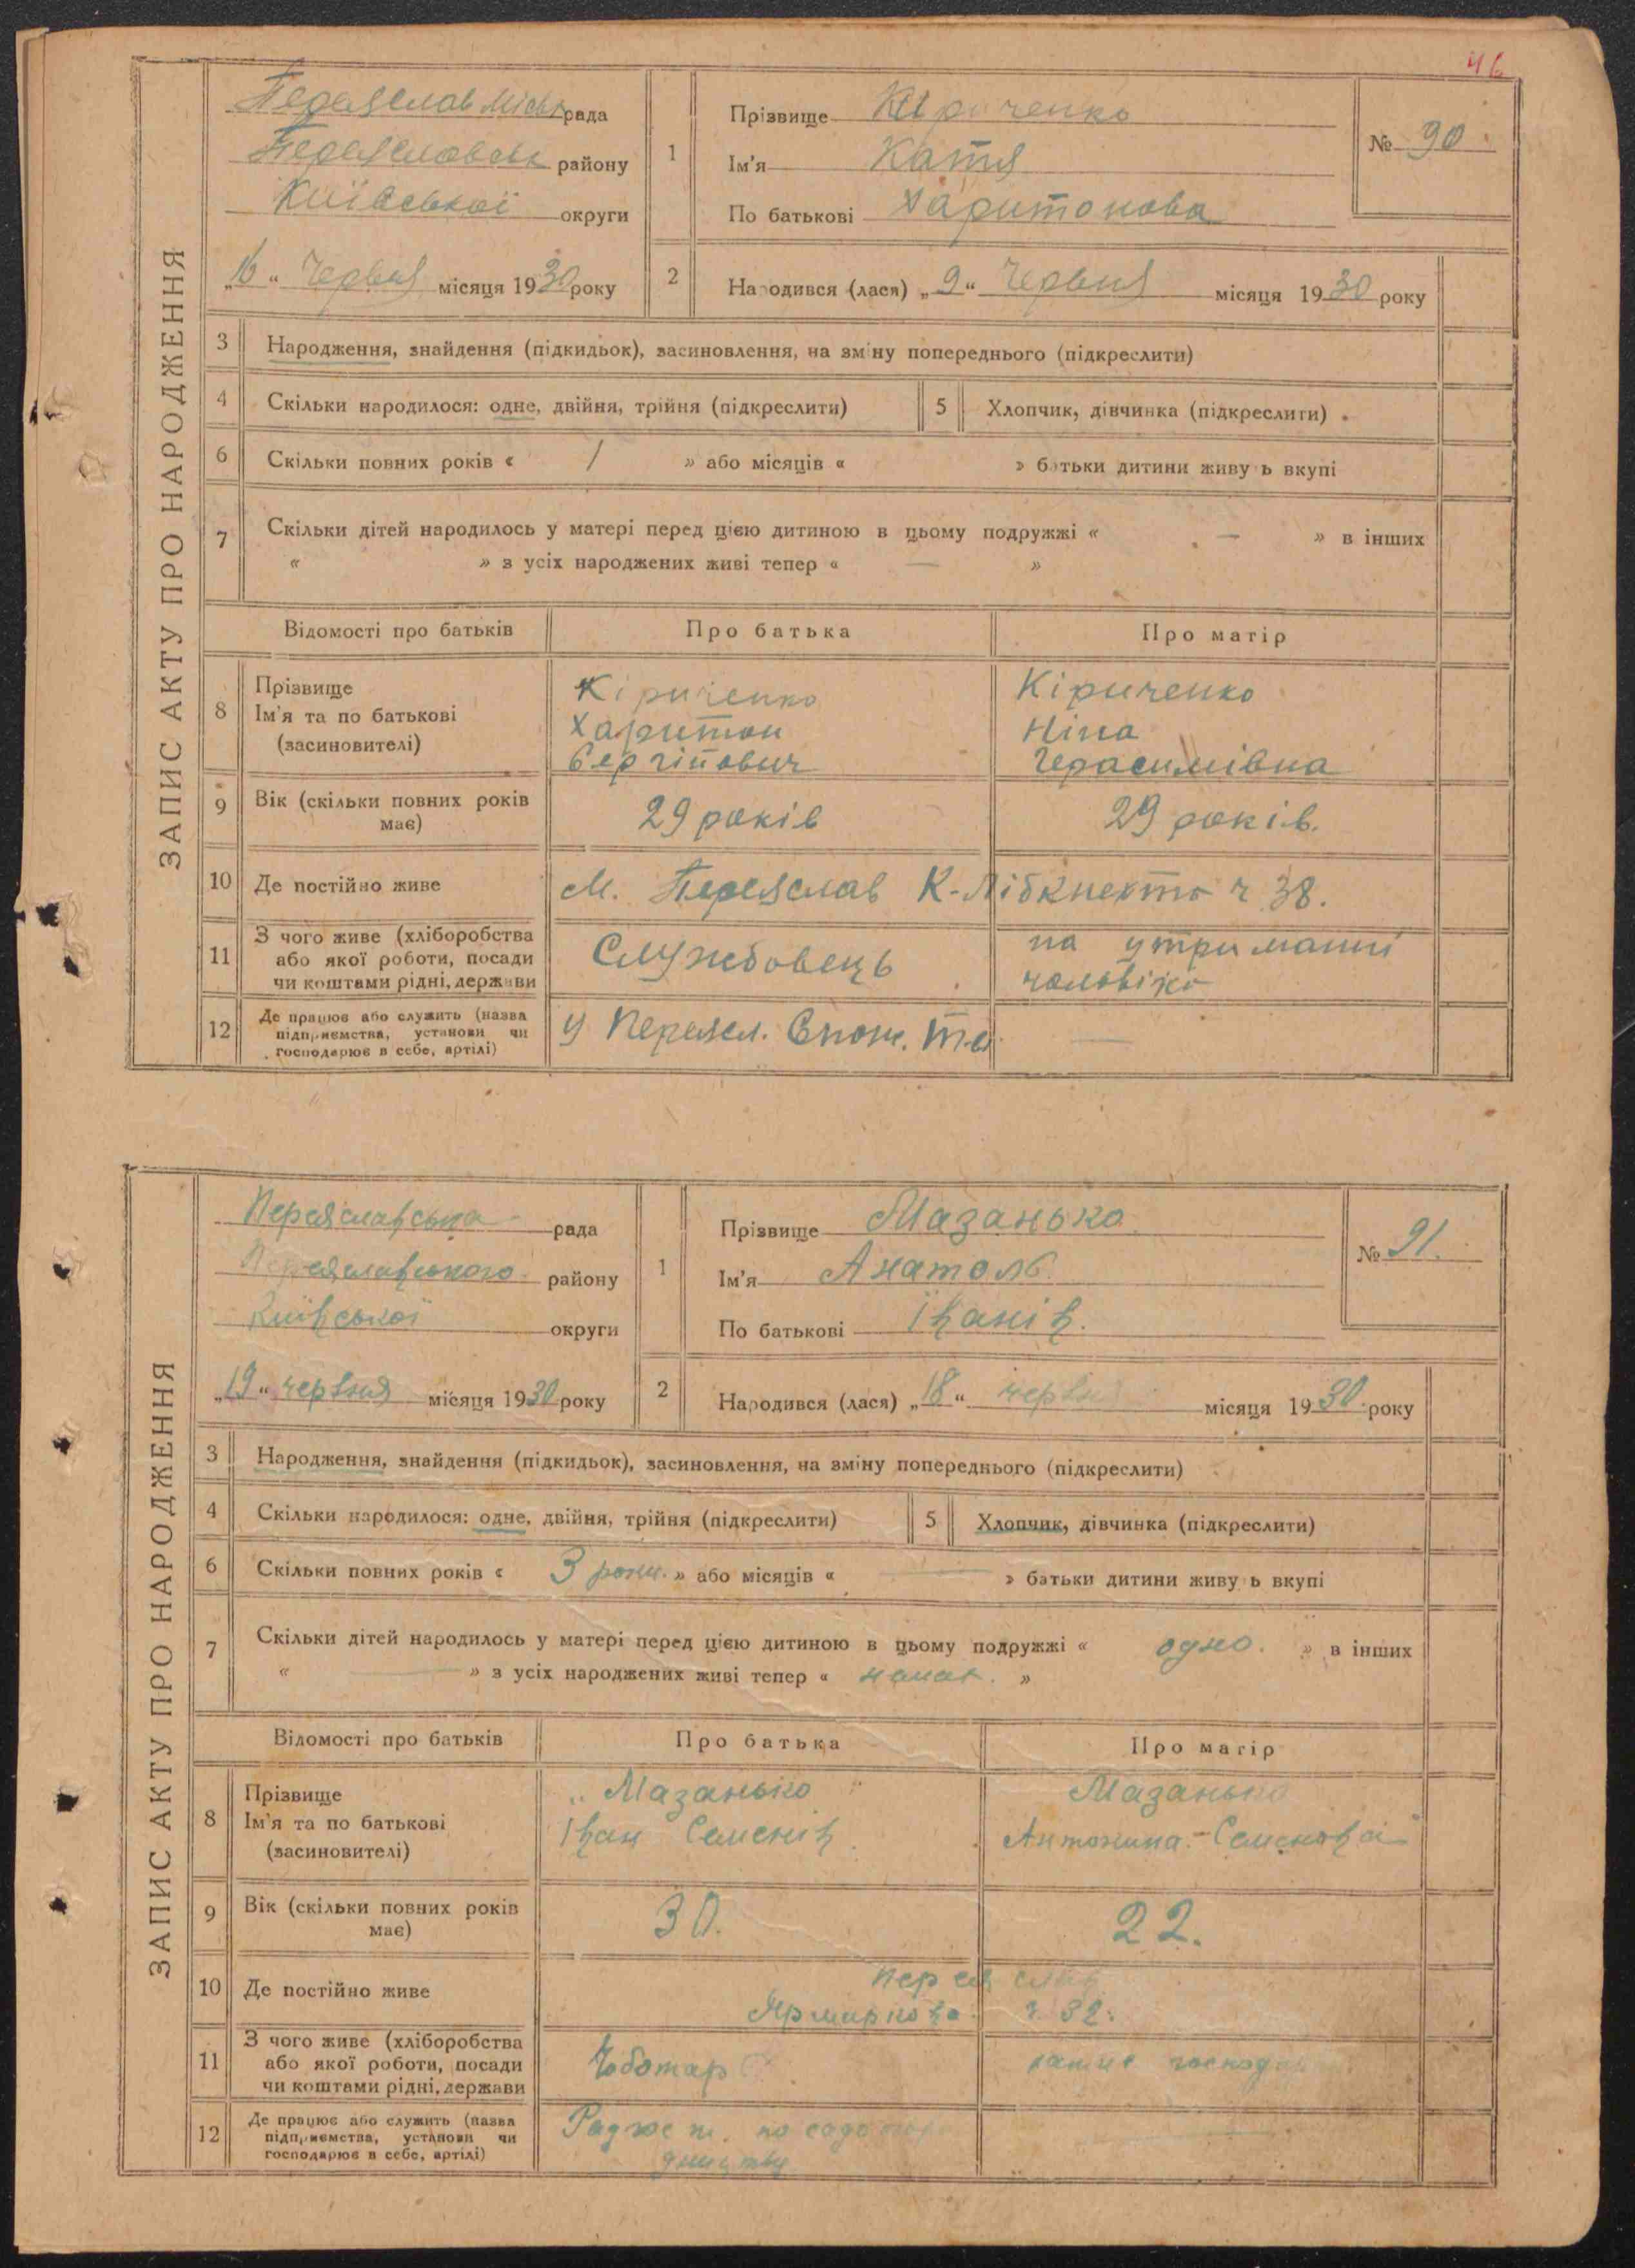 46
ЗАПИС АКТУ ПРО НАРОДЖЕННЯ
Переяслав міськ рада
Переяславськ району
Київської округи
„16“ Червня місяця 1930 року
1
Прізвище Кириченко
Ім'я Катя
По батькові Харитонова
№ 90
2
Народився (лася) „9“ Червня місяця 1930 року
3 Народження, знайдення (підкидьок), засиновлення, на зміну попереднього (підкреслити)
4 Скільки народилося: одне, двійня, трійня (підкреслити)
5 Хлопчик, дівчинка (підкреслити)
6 Скільки повних років « 1 » або місяців « » батьки дитини живуть вкупі
7 Скільки дітей народилось у матері перед цією дитиною в цьому подружжі « — » в інших
« » з усіх народжених живі тепер « — »
Відомості про батьків Про батька Про матір
8 Прізвище
Ім'я та по батькові
(засиновителі)
Кіриченко
Харитон
Сергійович
Кіриченко
Ніна
Герасимівна
9 Вік (скільки повних років має)
29 років
29 років.
10 Де постійно живе
м. Переяслав К-Лібкнехта ч 38.
11 З чого живе (хліборобства
або якої роботи, посади
чи коштами рідні, держави
Службовець
на утриманні
чоловіка
12 Де працює або служить (назва
підприємства, установи чи
господарює в себе, артілі)
У Переясл. Спож. т-ві
—
ЗАПИС АКТУ ПРО НАРОДЖЕННЯ
Переяславська рада
Переяславського району
Київської округи
„19“ червня місяця 1930 року
1
Прізвище Мазанько
Ім'я Анатоль
По батькові Іванів.
№ 91.
2
Народився (лася) „18“ червня місяця 1930 року
3 Народження, знайдення (підкидьок), засиновлення, на зміну попереднього (підкреслити)
4 Скільки народилося: одне, двійня, трійня (підкреслити)
5 Хлопчик, дівчинка (підкреслити)
6 Скільки повних років « 3 роки. » або місяців « — » батьки дитини живуть вкупі
7 Скільки дітей народилось у матері перед цією дитиною в цьому подружжі « одно. » в інших
« — » з усіх народжених живі тепер « »
Відомості про батьків Про батька Про матір
8 Прізвище
Ім'я та по батькові
(засиновителі)
Мазанько
Іван Семенів
Мазанько
Антонина Семенова
9 Вік (скільки повних років має)
30.
22.
10 Де постійно живе
Переяслав
Ярмаркова ч 32.
11 З чого живе (хліборобства
або якої роботи, посади
чи коштами рідні, держави
Чоботар
12 Де працює або служить (назва
підприємства, установи чи
господарює в себе, артілі)
по
—